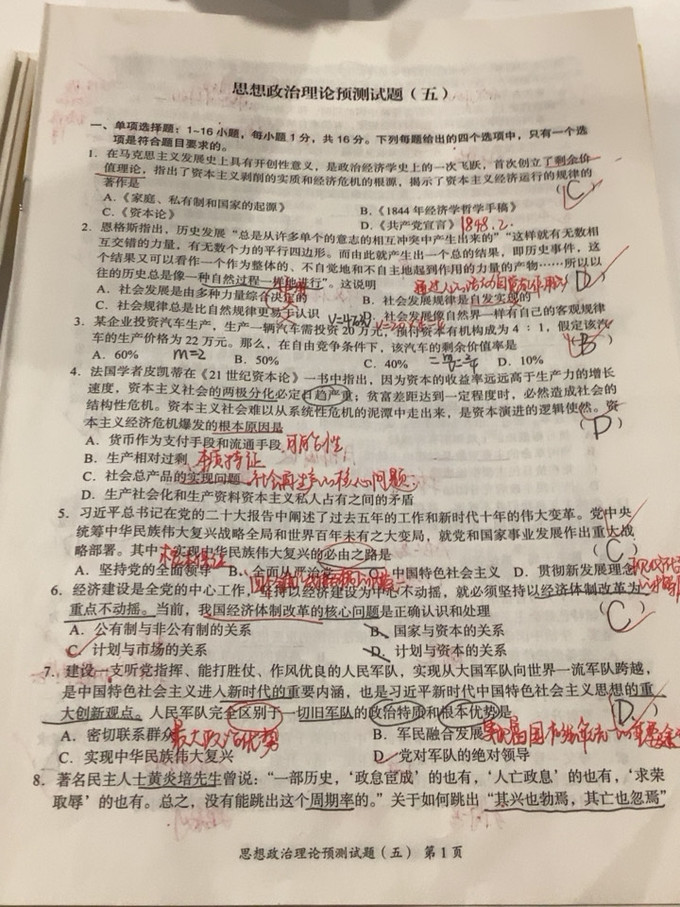 思想政治理论预测试题（五）
一、单项选择题：1~16 小题，每小题 1 分，共 16 分。下列每题给出的四个选项中，只有一个选
项是符合题目要求的。
1. 在马克思主义发展史上具有开创性意义，是政治经济学史上的一次飞跃，首次创立了剩余价
值理论，指出了资本主义剥削的实质和经济危机的根源，揭示了资本主义经济运行的规律的
著作是 （C）
A.《家庭、私有制和国家的起源》 B.《1844 年经济学哲学手稿》
C.《资本论》 D.《共产党宣言》 1848.2.
2. 恩格斯指出，历史发展“总是从许多单个的意志的相互冲突中产生出来的”“这样就有无数相
互交错的力量，有无数个力的平行四边形。而由此就产生出一个总的结果，即历史事件，这
个结果又可以看作一个作为整体的、不自觉地和不自主地起到作用的力量的产物……所以以
往的历史总是像一种自然过程一样地进行”。这说明 （D）
A. 社会发展是由多种力量综合决定的 B. 社会发展规律是自发实现的
C. 社会规律总是比自然规律更易于认识 社会发展像自然界一样有自己的客观规律
3. 某企业投资汽车生产，生产一辆汽车需投资 20 万元，预付资本有机构成为 4：1，假定该汽
车的生产价格为 22 万元。那么，在自由竞争条件下，该汽车的剩余价值率是 （B）
A. 60% m=2 B. 50% C. 40% D. 10%
4. 法国学者皮凯蒂在《21 世纪资本论》一书中指出，因为资本的收益率远远高于生产力的增长
速度，资本主义社会的两极分化必定日趋严重；贫富差距达到一定程度时，必然造成社会的
结构性危机。资本主义社会难以从系统性危机的泥潭中走出来，是资本演进的逻辑使然。资
本主义经济危机爆发的根本原因是 （D）
A. 货币作为支付手段和流通手段 可能性
B. 生产相对过剩 本质特征
C. 社会总产品的实现问题 社会再生产的核心问题
D. 生产社会化和生产资料资本主义私人占有之间的矛盾
5. 习近平总书记在党的二十大报告中阐述了过去五年的工作和新时代十年的伟大变革。党中央
统筹中华民族伟大复兴战略全局和世界百年未有之大变局，就党和国家事业发展作出重大战
略部署。其中，实现中华民族伟大复兴的必由之路是 （C）
A. 坚持党的全面领导 B. 全面从严治党 C. 中国特色社会主义 D. 贯彻新发展理念
6. 经济建设是全党的中心工作，坚持以经济建设为中心不动摇，就必须坚持以经济体制改革为
重点不动摇。当前，我国经济体制改革的核心问题是正确认识和处理 （C）
A. 公有制与非公有制的关系 B. 国家与资本的关系
C. 计划与市场的关系 D. 计划与资本的关系
7. 建设一支听党指挥、能打胜仗、作风优良的人民军队，实现从大国军队向世界一流军队跨越，
是中国特色社会主义进入新时代的重要内涵，也是习近平新时代中国特色社会主义思想的重
大创新观点。人民军队完全区别于一切旧军队的政治特质和根本优势是 （D）
A. 密切联系群众 最大政治优势 B. 军民融合发展
C. 实现中华民族伟大复兴 D. 党对军队的绝对领导
8. 著名民主人士黄炎培先生曾说：“一部历史，‘政怠宦成’的也有，‘人亡政息’的也有，‘求荣
取辱’的也有。总之，没有能跳出这个周期率的。”关于如何跳出“其兴也勃焉，其亡也忽焉”
思想政治理论预测试题（五） 第 1 页